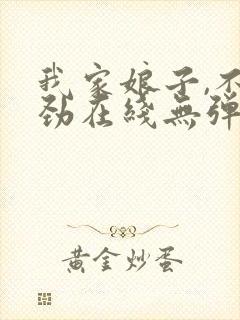 我家娘子,不
劲在綫無弹
黄金炒蛋